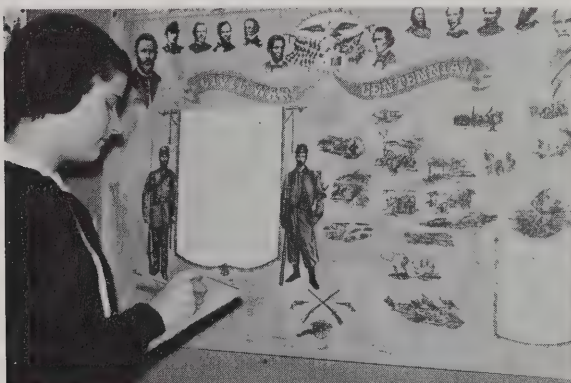 CIVIL WAR CENTENNIAL